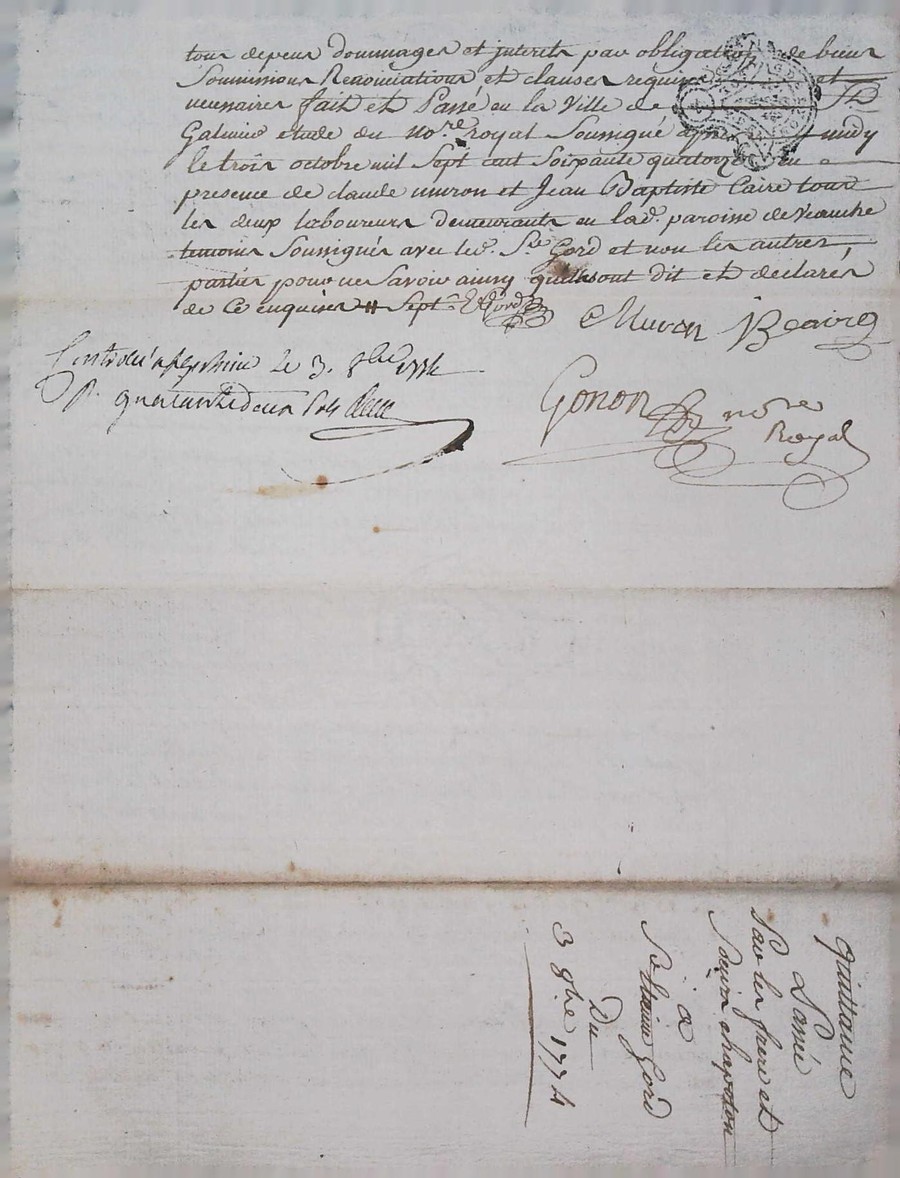 tous depens dommages et jnterets par obligation de biens
Soumissions Renonciations et clauses requises et
necessaires fait et Passé en la Ville de St
Galmier etude du no.re royal Soussigné apres midy
le trois octobre mil Sept cent Soixante quatorze en
presence de claude muron et Jean Baptiste Caire tous
les deux laboureurs demeurants en lad. paroisse de Veauche
temoins Soussignés avec led. Sr Gord et non les autres
parties pour ne Savoir ainsy quils ont dit et declarés
de ce enquises Sept Gord
Muron JBCaire
Controlé a St galmier le 3. 8bre 1774
R. quarante deux sols
Gonon no.re
Royal
quittance
Passé
Par les frere et
Soeurs chapoton
a
Sr Gord
Du
3 8bre 1774